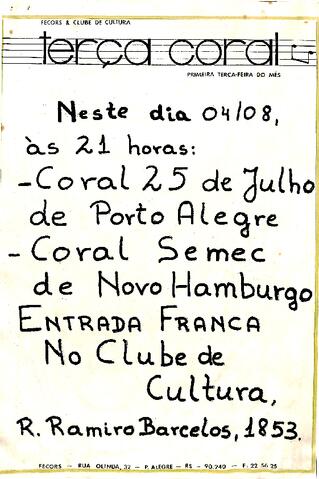 FECORS & CLUBE DE CULTURA
terça coral
PRIMEIRA TERÇA-FEIRA DO MÊS
Neste dia 04/08,
às 21 horas:
-Coral 25 de Julho
de Porto Alegre
-Coral Semec
de Novo Hamburgo
ENTRADA FRANCA
No Clube de
Cultura,
R. Ramiro Barcelos, 1853.
FECORS - RUA OLINDA, 32 - P. ALEGRE - RS - 90.240 - F. 22 56 25